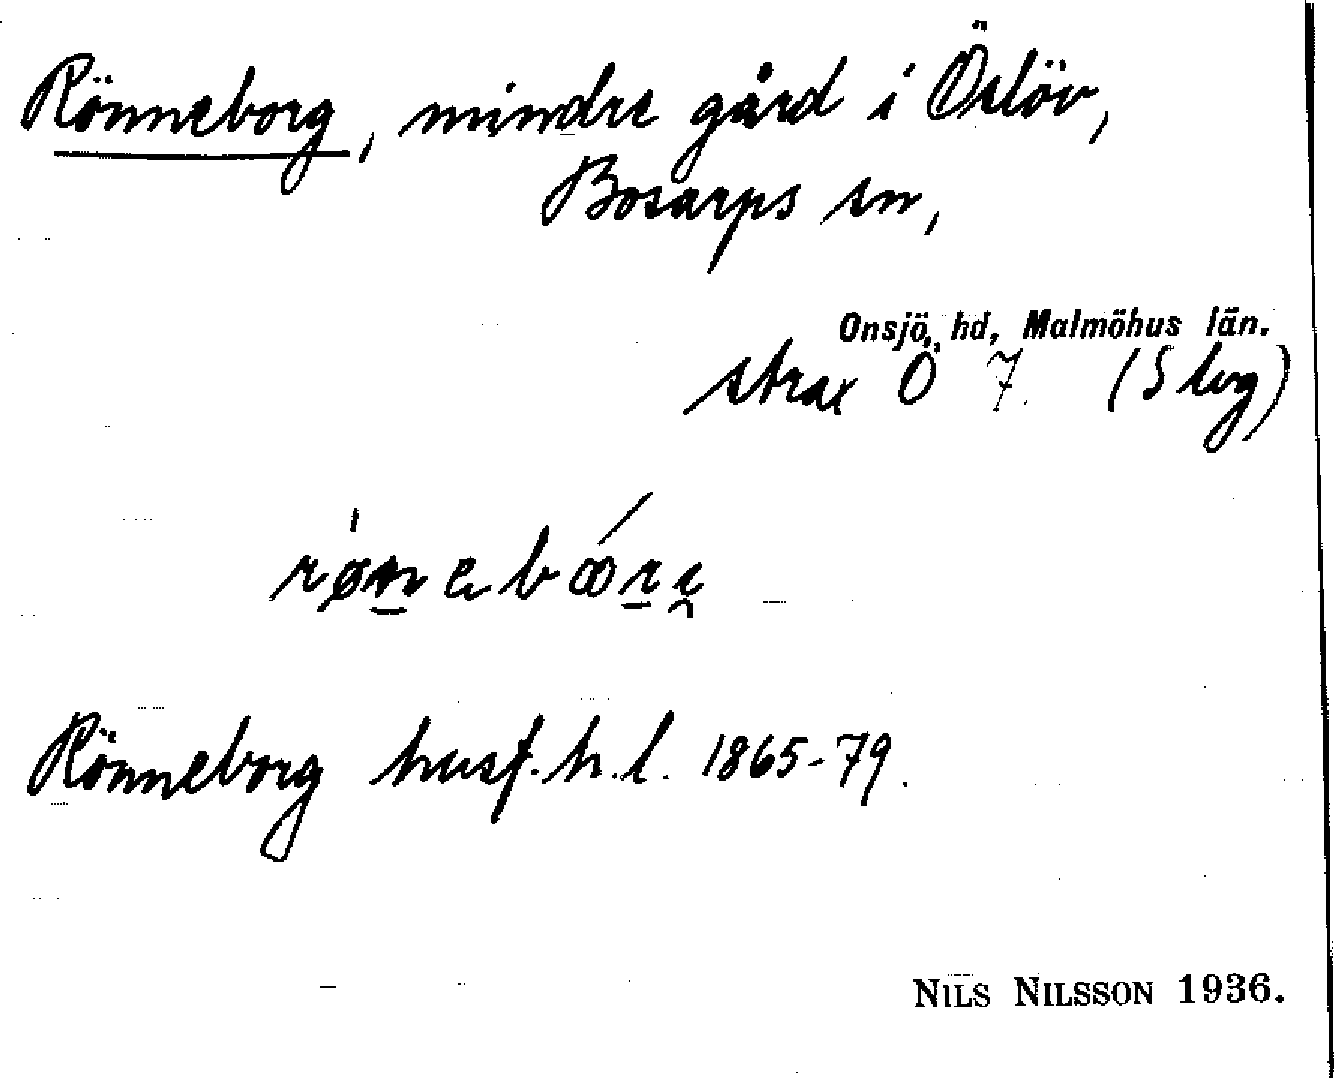 Rönneborg, mindre gård i Öslöv,
Bosarps sn,
Onsjö, hd, Malmöhus län.
strax Ö 7. (S bg)
Rönneborg husf.h.l. 1865-79.
NILS NILSSON 1936.